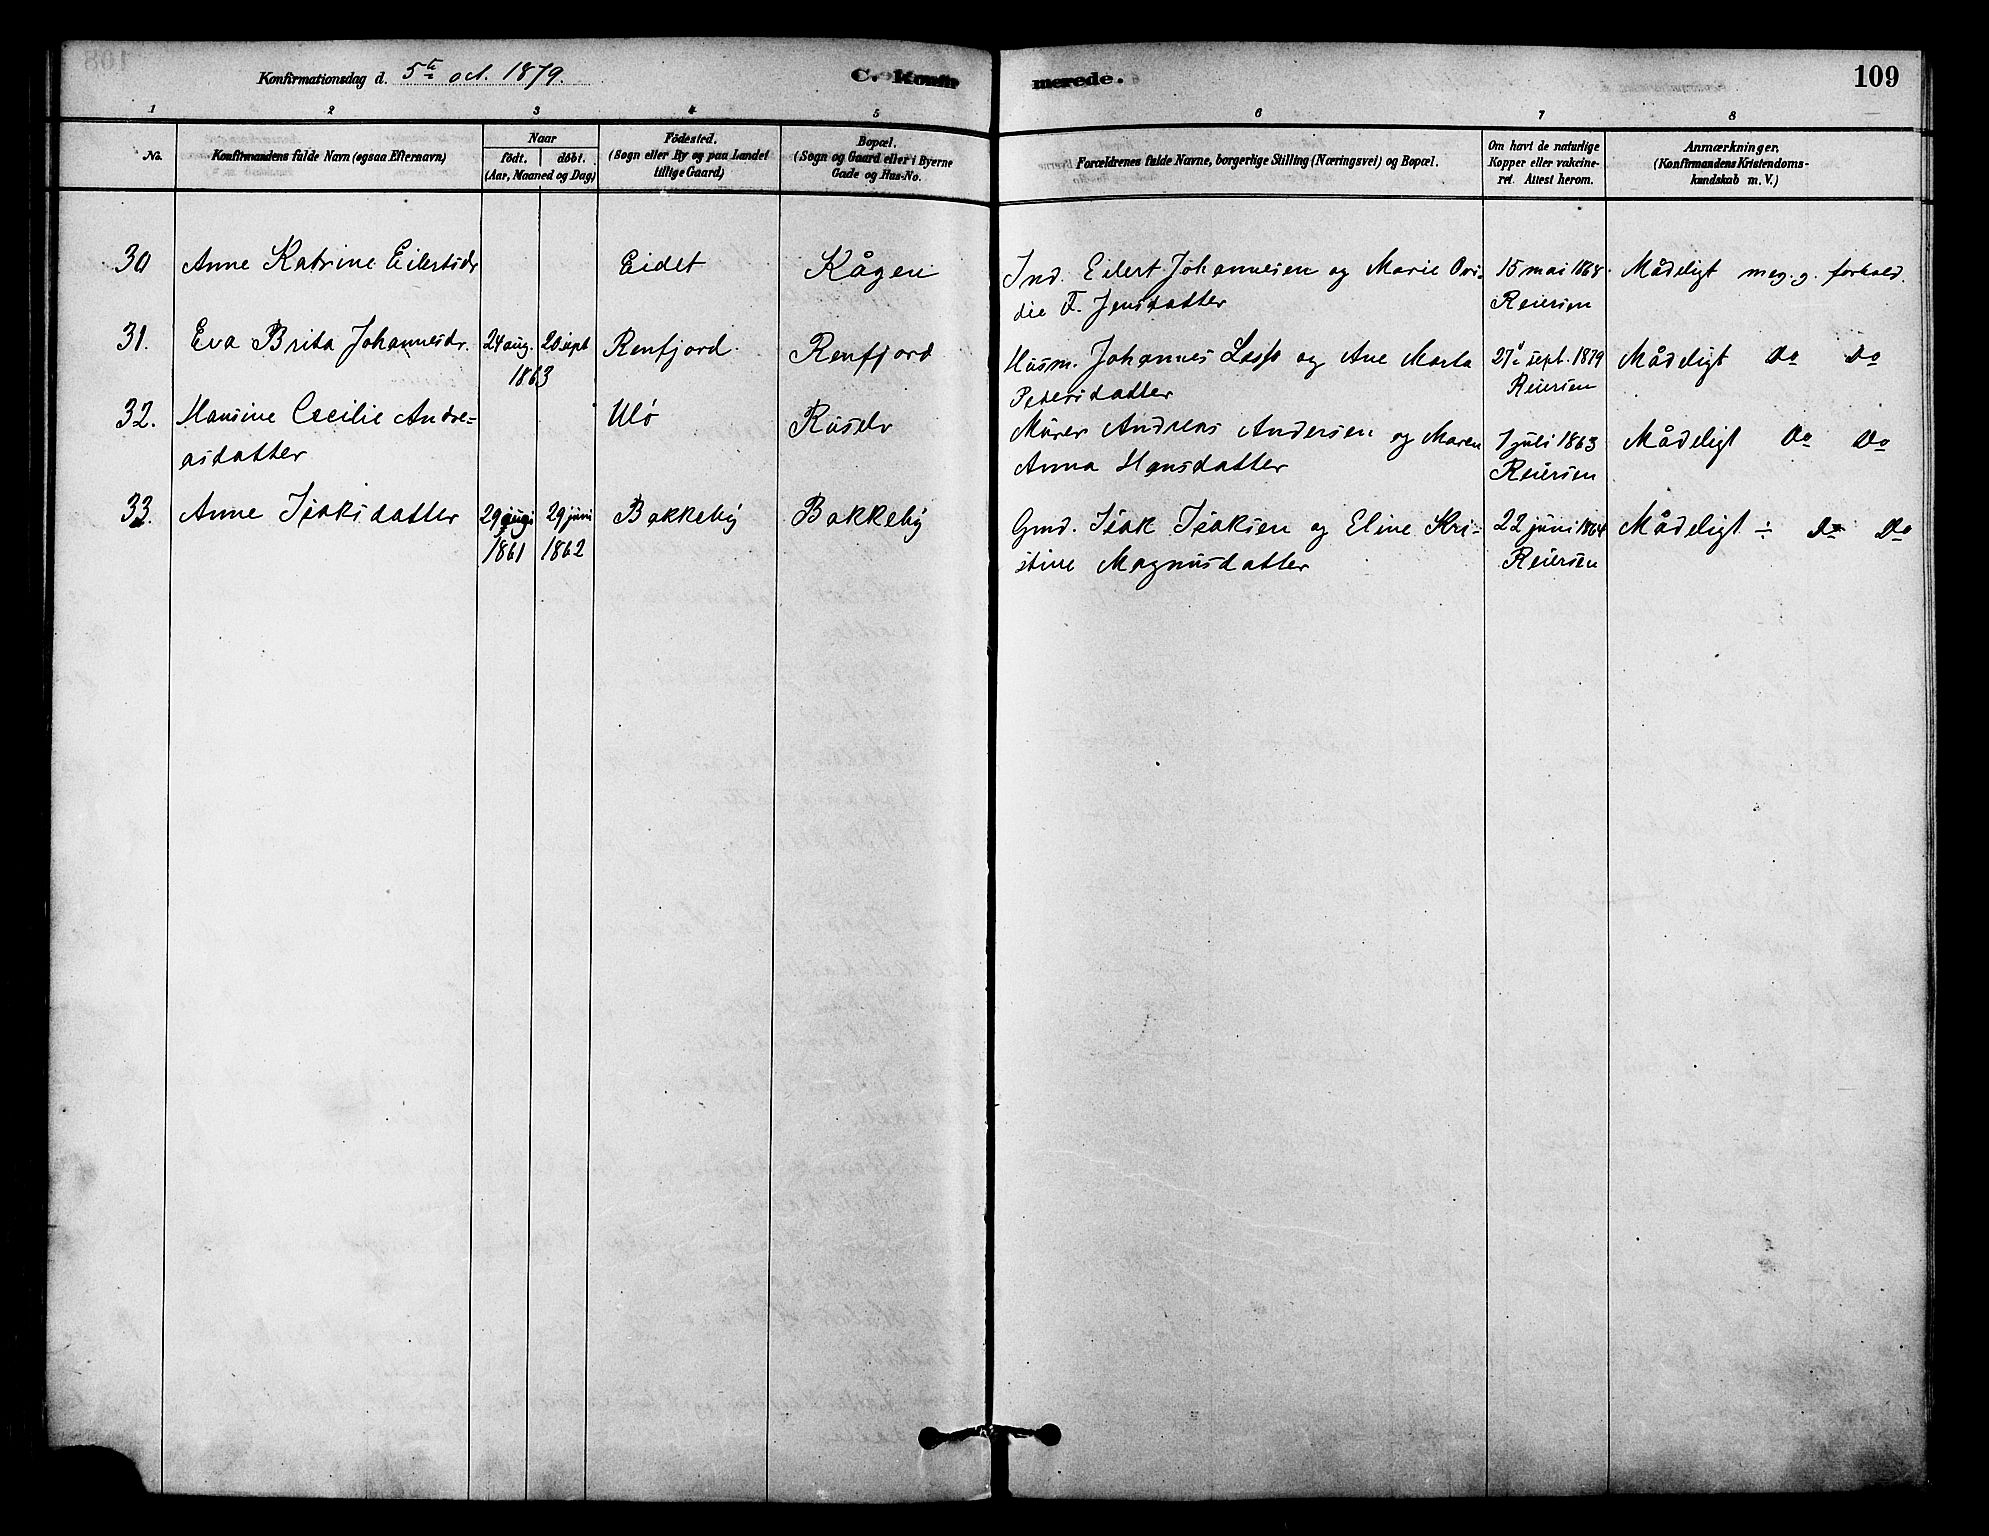 Konfirmationsdag d. 5te oct. 1879.
C. Konfirmerede.
109
1 2 3 4 5 6 7 8
No.
Konfirmandens fulde Navn (ogsaa Efternavn)
Naar
födt. döbt.
(Aar, Maaned og Dag)
Födested.
(Sogn eller By og paa Landet
tillige Gaard)
Bopæl.
(Sogn og Gaard eller i Byerne
Gade og Hus-No.
Forældrenes fulde Navne, borgerlige Stilling (Næringsvei) og Bopæl.
Om havt de naturlige
Kopper eller vakcine-
ret. Attest herom.
Anmærkninger.
(Konfirmandens Kristendoms-
kundskab m. V.)
30 Anne Katrine Eilertsdr Eidet Kågen Ind. Eilert Johannesen og Marie Ovi- 15 mai 1868 Mådeligt meg. g. forhold.
die F. Jensdatter Reiersen
31. Eva Brita Johannesdr. 24 aug. 20 sept Renfjord. Renfjord Husm. Johannes og Ane Marta 27 sept. 1879 Mådeligt Do Do
1863 Pedersdatter Reiersen
32. Hansine Cecilie Andre- Ulö Murer Andreas Andersen og Maren 1 juli 1863 Mådeligt Do Do
asdatter Anna Hansdatter Reiersen
33. Anne Isaksdatter 29 29 juni Bakkeby Bakkeby Gmd. Isak Isaksen og Eline Kri- 22 juni 1864 Mådeligt ÷ Do Do
1861 1862 stine Magnusdatter Reiersen